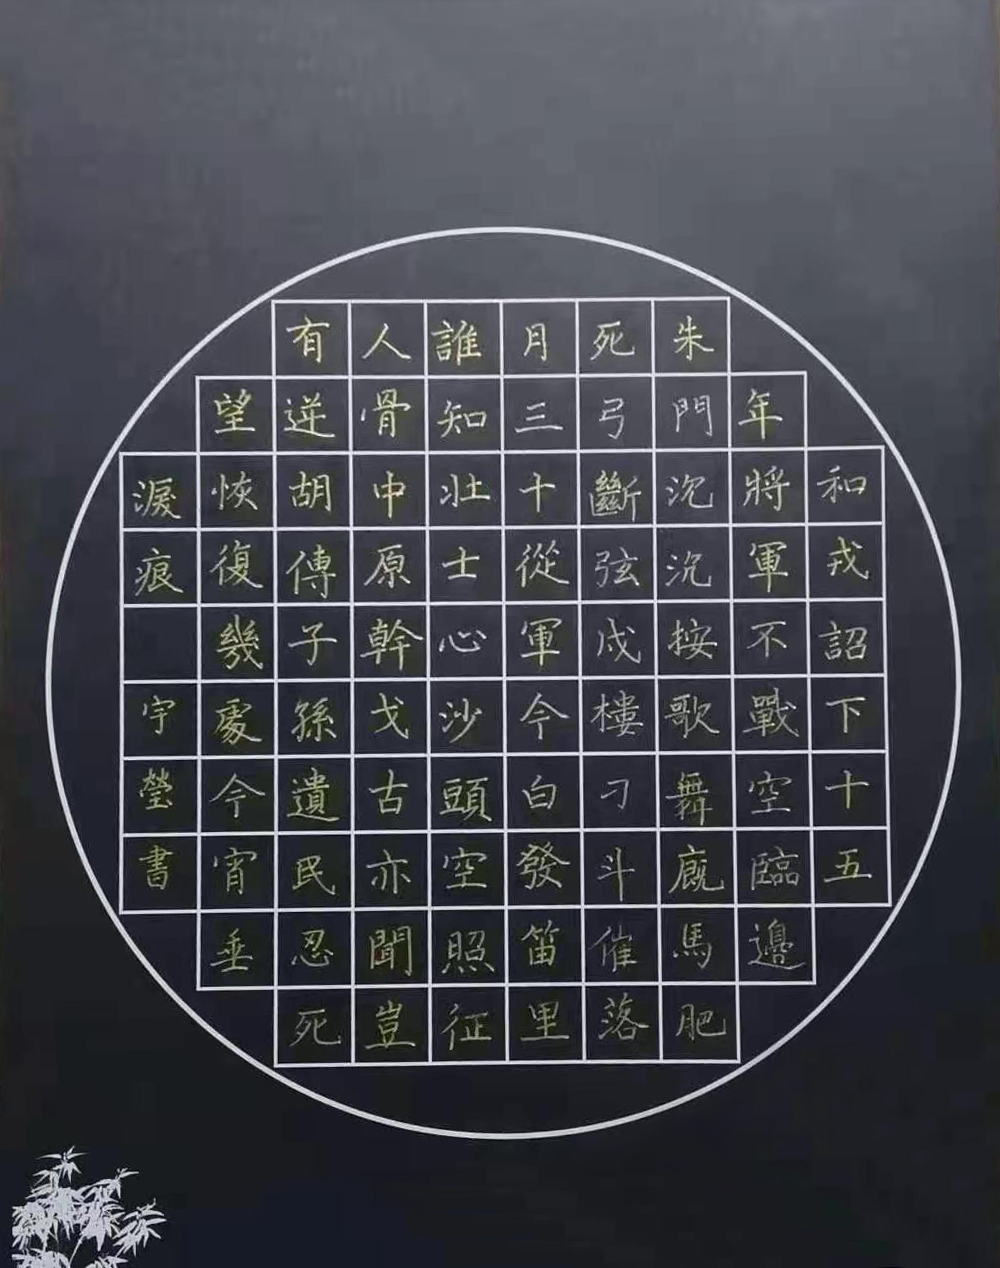 和戎詔下十五
年將軍不戰空臨邊
朱門沉沉按歌舞廄馬肥
死弓斷弦戍樓刁斗催落
月三十從軍今白發笛里
誰知壯士心沙頭空照征
人骨中原幹戈古亦聞豈
有逆胡傳子孫遺民忍死
望恢復幾處今宵垂
淚痕 宇瑩書